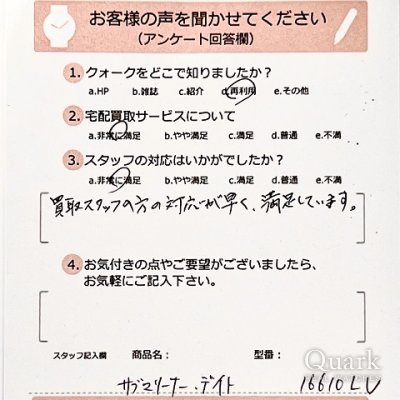 お客様の声を聞かせてください
（アンケート回答欄）
1. クォークをどこで知りましたか？
a.HP b.雑誌 c.紹介 d.再利用 e.その他
2. 宅配買取サービスについて
a.非常に満足 b.やや満足 c.満足 d.普通 e.不満
3. スタッフの対応はいかがでしたか？
a.非常に満足 b.やや満足 c.満足 d.普通 e.不満
買取スタッフの方の対応が早く、満足しています。
4. お気付きの点やご要望がございましたら、
お気軽にご記入下さい。
スタッフ記入欄 商品名： 型番：
サブマリーナー・デイト 16610LV
Quark